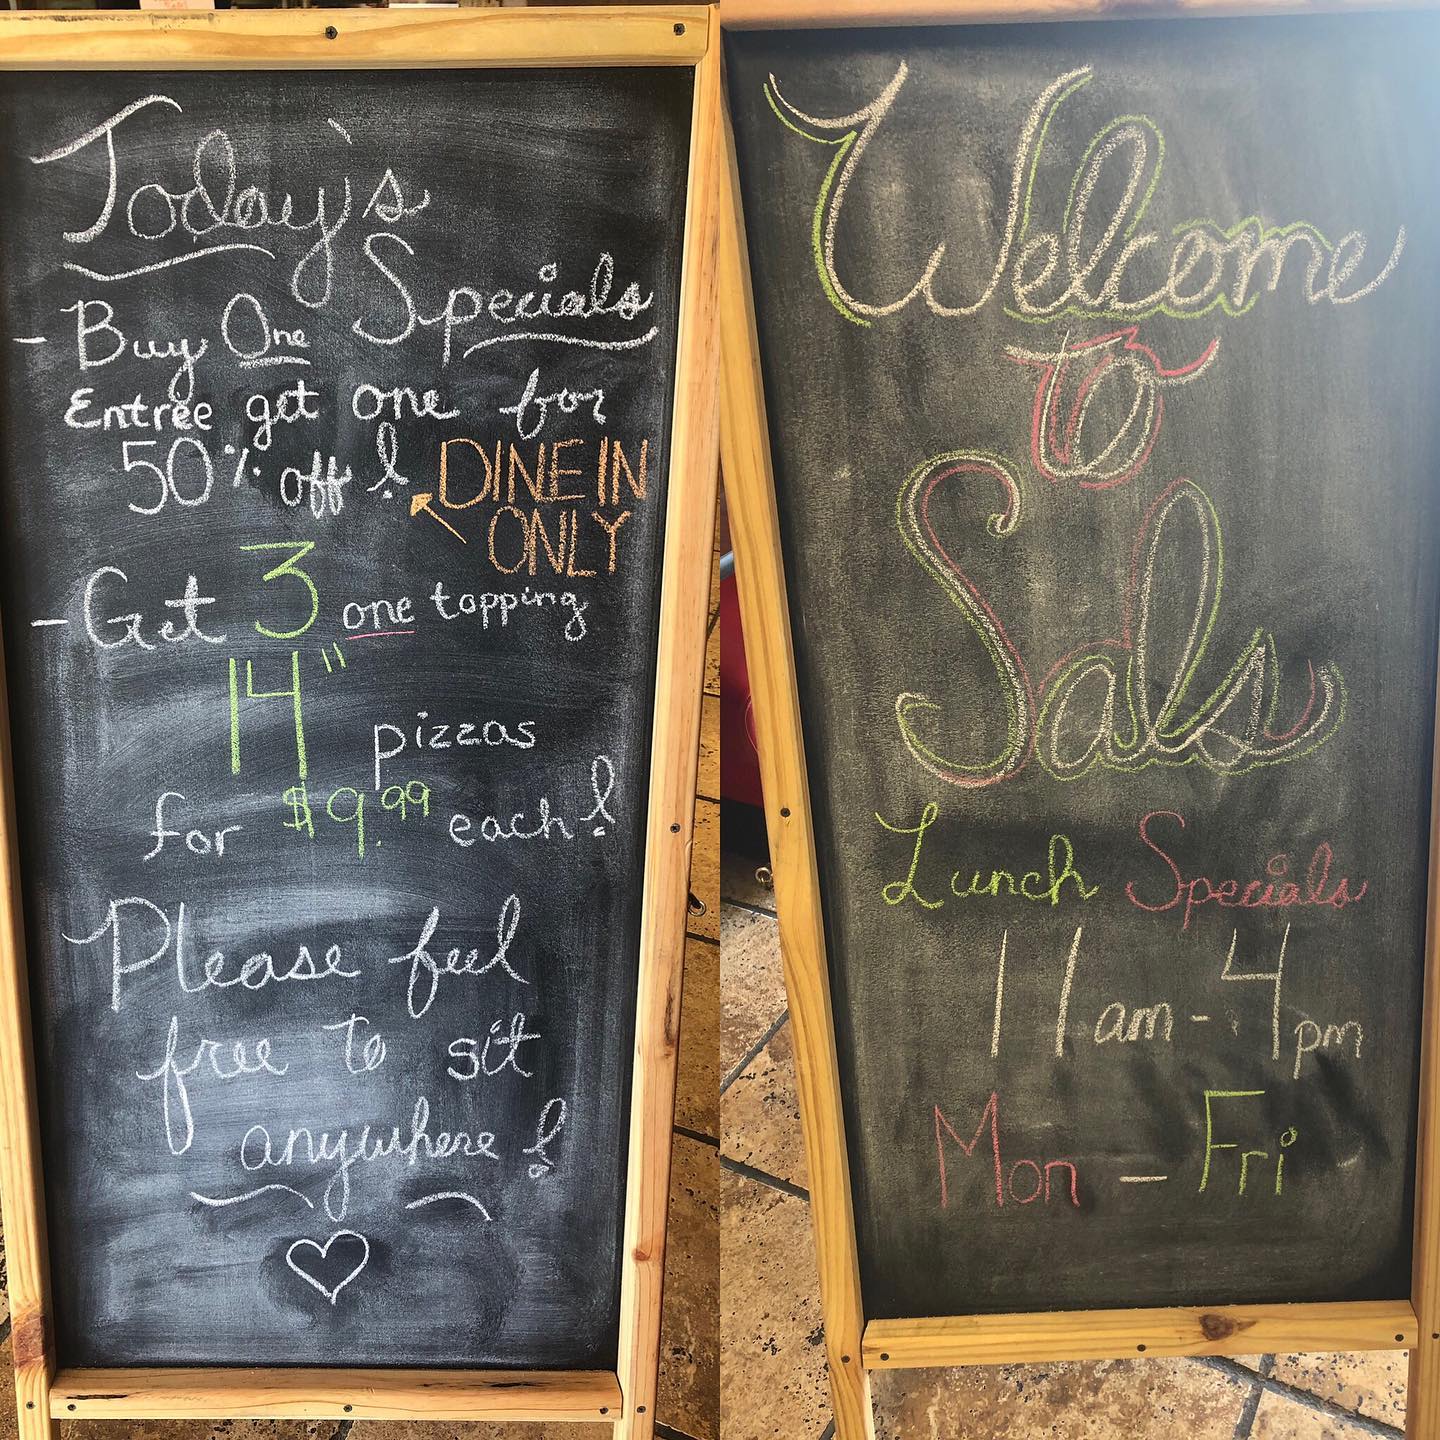 Today's
Specials
- Buy One
Entrée get one for
50% off!
DINE IN
ONLY
- Get 3 one topping
14"
pizzas
for $9.99 each!
Please feel
free to sit
anywhere!
Welcome
to
Sals
Lunch Specials
11am - 4pm
Mon - Fri